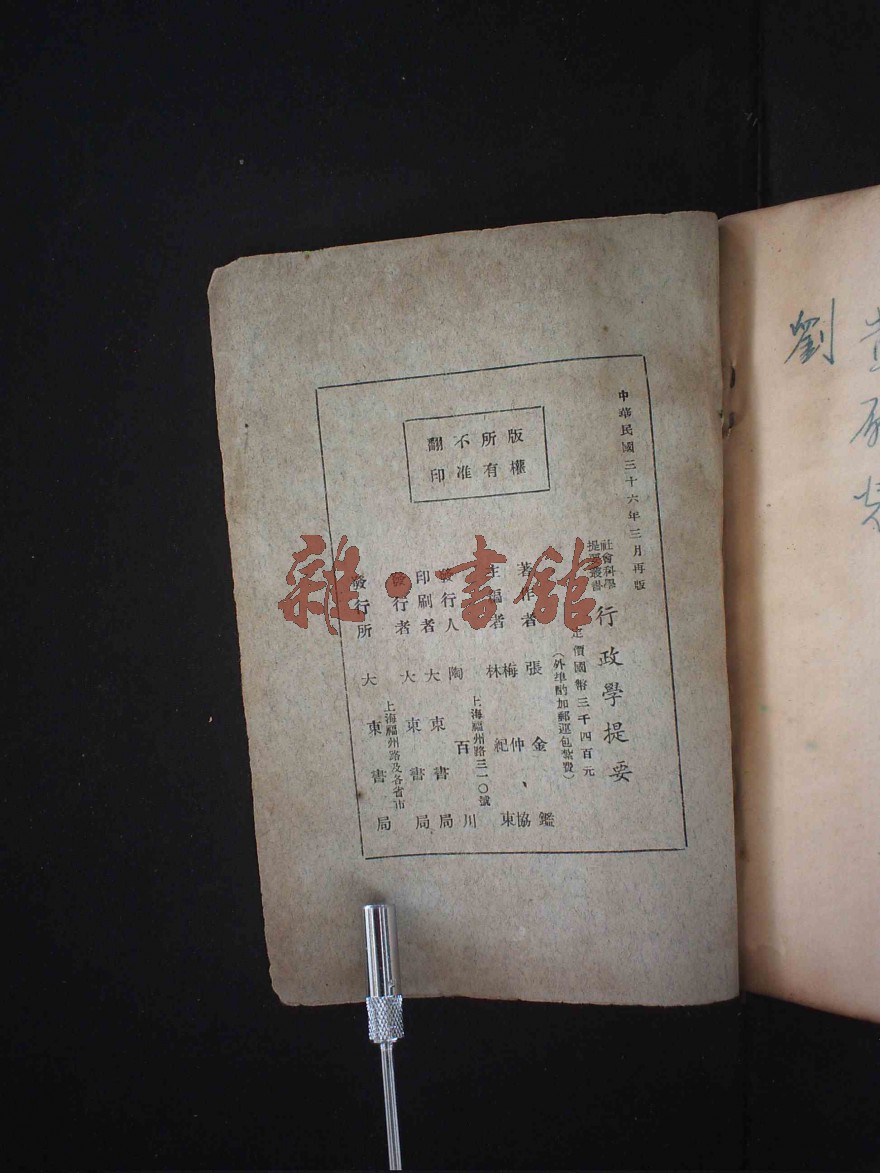 中華民國三十六年三月再版
社會科學
提要叢書
行政學提要
定價國幣三千四百元
（外埠酌加郵運包紮費）
版權
所有
不准
翻印
著作者 張金鑑
主編者 梅仲協、林紀東
發行人 陶百川
上海福州路三一〇號
印刷者 大東書局
發行者 大東書局
發行所 大東書局
上海福州路及各省市
雜·書館
劉